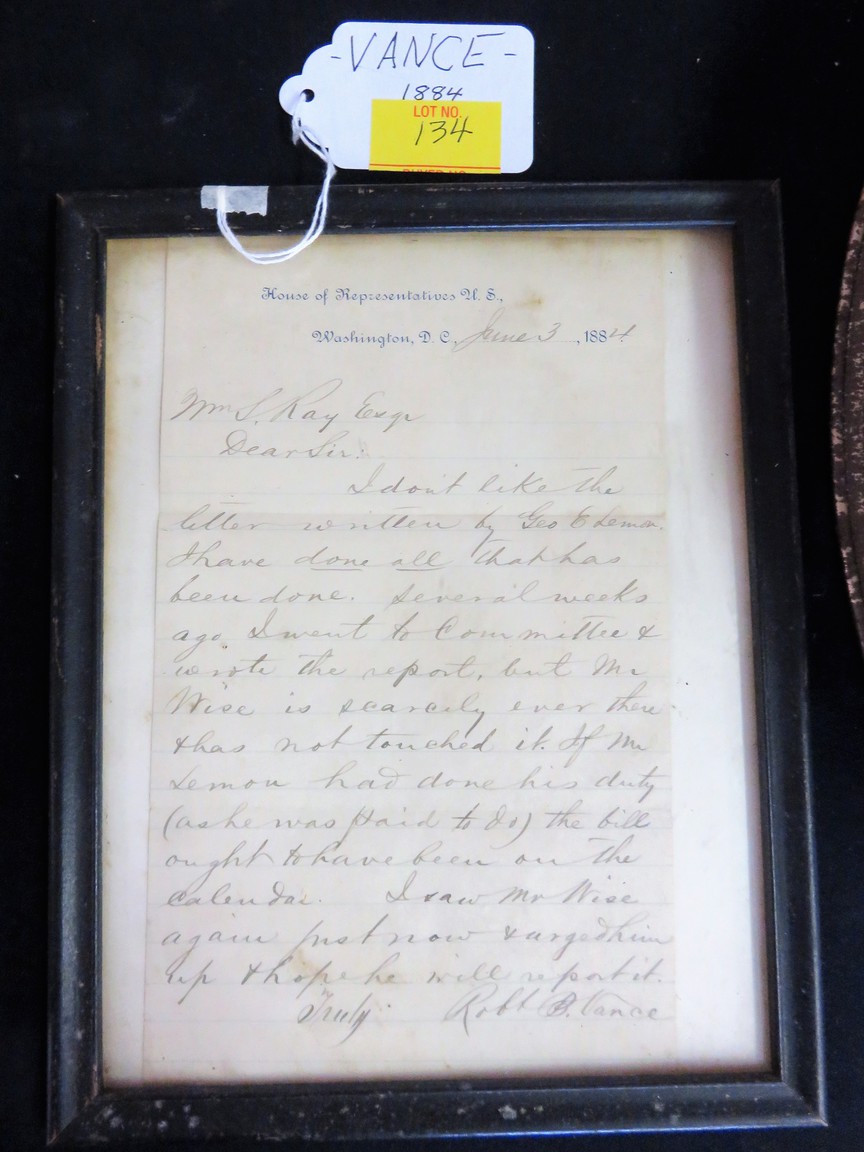 -VANCE-
1884
LOT NO.
134
House of Representatives U. S.,
Washington, D. C., June 3, 1884.
Wm S. Ray Esqr
Dear Sir:
I don't like the
letter written by Geo E Lemon.
I have done all that has
been done. Several weeks
ago I went to Committee &
wrote the report, but Mr
Wise is scarcely ever there
& has not touched it. If Mr
Lemon had done his duty
(as he was paid to do) the bill
ought to have been on the
calendar. I saw Mr Wise
again just now & urged him
up & hope he will report it.
Truly Robt B. Vance